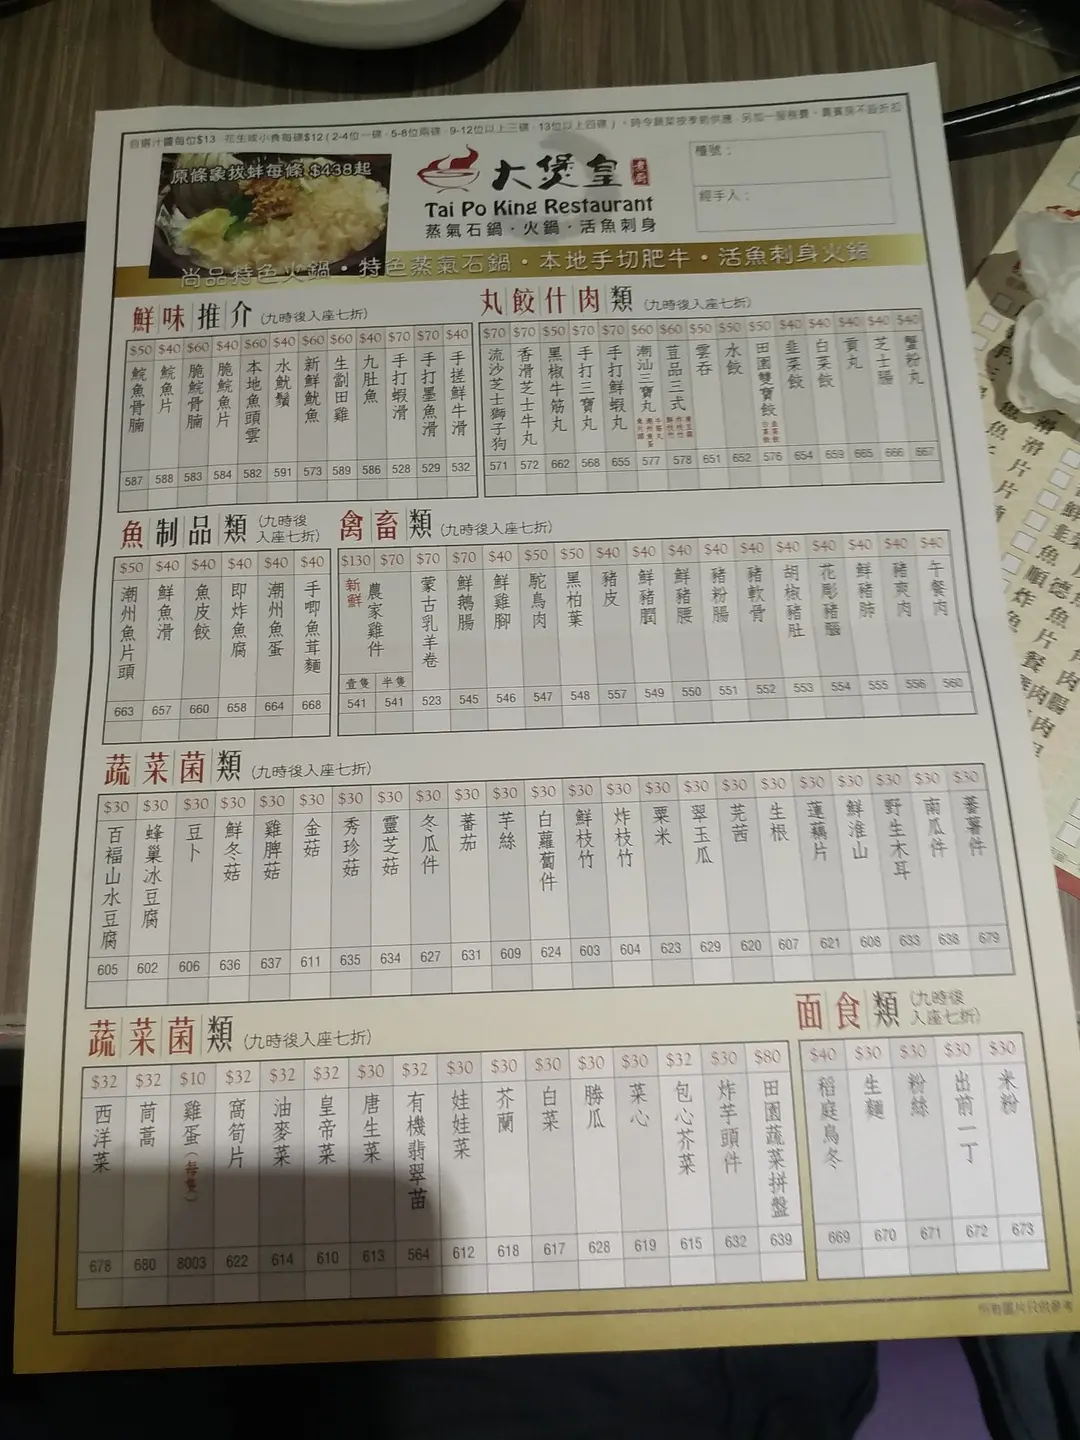 自選汁醬每位$13 花生或小食每碟$12(2-4位一碟，5-8位兩碟，9-12位以上三碟，13位以上四碟)。時令蔬菜按季節供應 另加一服務費，貴賓房不設折扣
原條象拔蚌每條 $438起
大煲皇
Tai Po King Restaurant
蒸氣石鍋·火鍋·活魚刺身
檯號：
經手人：
尚品特色火鍋·特色蒸氣石鍋·本地手切肥牛·活魚刺身火鍋
鮮味推介 (九時後入座七折)
$50 鯇魚骨腩 587
$40 鯇魚片 588
$60 脆鯇骨腩 583
$40 脆鯇魚片 584
$60 本地魚頭雲 582
$40 水魷鬚 591
$60 新鮮魷魚 573
$60 生劏田雞 589
$40 九肚魚 586
$70 手打蝦滑 528
$70 手打墨魚滑 529
$40 手搓鮮牛滑 532
丸餃什肉類 (九時後入座七折)
$70 流沙芝士獅子狗 571
$70 香滑芝士牛丸 572
$50 黑椒牛筋丸 662
$70 手打三寶丸 568
$70 手打鮮蝦丸 655
$60 潮汕三寶丸 577
$60 荳品三式 578
$50 雲吞 651
$50 水餃 652
$50 田園雙寶餃 576
$40 韭菜餃 654
$40 白菜餃 659
$40 貢丸 665
$40 芝士腸 666
$40 蟹粉丸 667
魚制品類 (九時後入座七折)
$50 潮州魚片頭 663
$40 鮮魚滑 657
$40 魚皮餃 660
$40 即炸魚腐 658
$40 潮州魚蛋 664
$40 手唧魚茸麵 668
禽畜類 (九時後入座七折)
$130 $70 新鮮 農家雞件 壹隻 半隻 541 541
$70 蒙古乳羊卷 523
$70 鮮鵝腸 545
$40 鮮雞腳 546
$50 駝鳥肉 547
$50 黑柏葉 548
$40 豬皮 557
$40 鮮豬潤 549
$40 鮮豬腰 550
$40 豬粉腸 551
$40 豬軟骨 552
$40 胡椒豬肚 553
$40 花彫豬腦 554
$40 鮮豬肺 555
$40 豬爽肉 556
$40 午餐肉 560
蔬菜菌類 (九時後入座七折)
$30 百福山水豆腐 605
$30 蜂巢冰豆腐 602
$30 豆卜 606
$30 鮮冬菇 636
$30 雞脾菇 637
$30 金菇 611
$30 秀珍菇 635
$30 靈芝菇 634
$30 冬瓜件 627
$30 蕃茄 631
$30 芋絲 609
$30 白蘿蔔件 624
$30 鮮枝竹 603
$30 炸枝竹 604
$30 粟米 623
$30 翠玉瓜 629
$30 芫茜 620
$30 生根 607
$30 蓮藕片 621
$30 鮮淮山 608
$30 野生木耳 633
$30 南瓜件 638
$30 蕃薯件 679
蔬菜菌類 (九時後入座七折)
$32 西洋菜 678
$32 茼蒿 680
$10 雞蛋(每隻) 8003
$32 窩筍片 622
$32 油麥菜 614
$32 皇帝菜 610
$30 唐生菜 613
$32 有機翡翠苗 564
$30 娃娃菜 612
$30 芥蘭 618
$30 白菜 617
$30 勝瓜 628
$30 菜心 619
$32 包心芥菜 615
$30 炸芋頭件 632
$80 田園蔬菜拼盤 639
面食類 (九時後入座七折)
$40 稻庭烏冬 669
$30 生麵 670
$30 粉絲 671
$30 出前一丁 672
$30 米粉 673
所有圖片只供參考